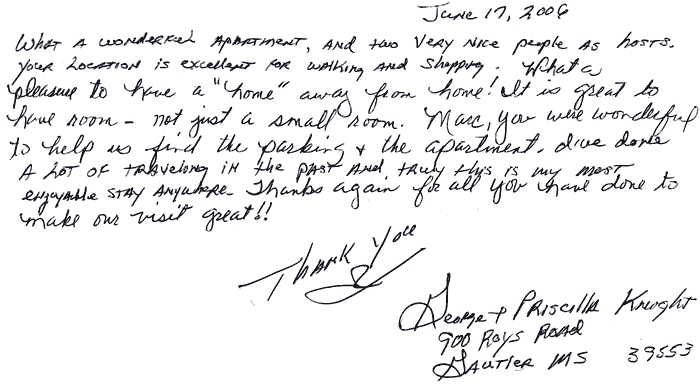 June 17, 2006
WHAT A WONDERFUL APARTMENT, AND TWO VERY NICE PEOPLE AS HOSTS.
YOUR LOCATION IS EXCELLENT FOR WALKING AND SHOPPING. What a
pleasure to have a "home" away from home! It is great to
have room - not just a small room. Marc, you were wonderful
to help us find the parking & the apartment. I've done
A LOT OF TRAVELONG IN the PAST AND, truly this is my most
enjoyable STAY ANYWHERE - Thanks again for all you have done to
make our visit great!!
THANK YOU
George & PRISCILLA Knight
900 Roys ROAD
GAUTIER MS 39553